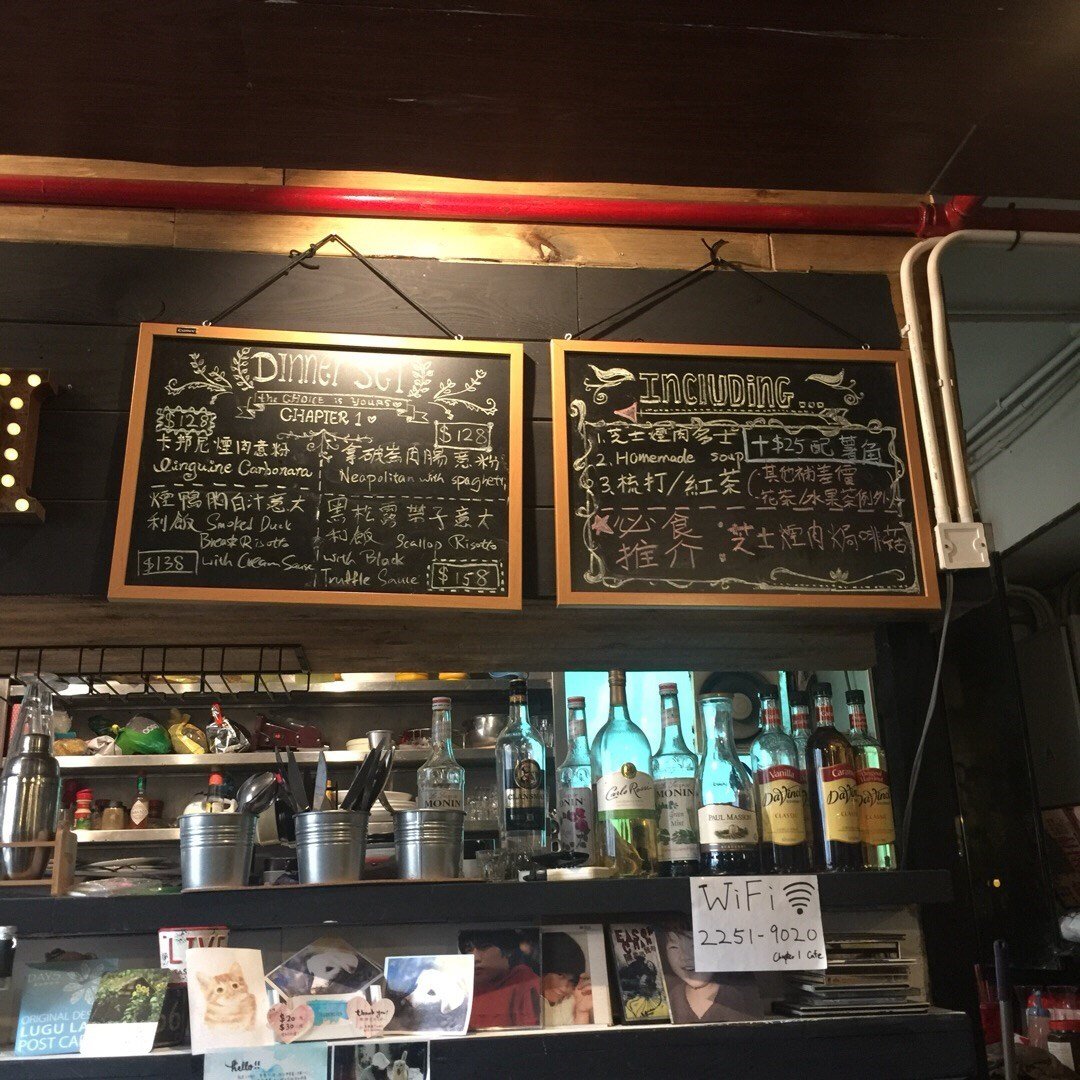 DINNER SET
the CHOICE is YOURS
CHAPTER 1
$128
卡邦尼煙肉意粉
Linguine Carbonara
$128
拿破崙肉腸意粉
Neapolitan with spaghetti
煙鴨胸白汁意大
利飯 Smoked Duck
Breast Risotto
with Cream Sause
$138
黑松露帶子意大
利飯 Scallop Risotto
with Black
Truffle Sauce
$158
INCLUDING...
1. 芝士煙肉多士
2. Homemade soup
3. 梳打/紅茶
+$25配薯角
(其他補差價
花茶/水果茶例外)
必食
推介
:芝士煙肉焗啡菇
MONIN
MONIN
Carlo Rossi
MONIN
Green
Mint
PAUL MASSON
Vanilla
DaVinci
CLASSIC
Caramel
DaVinci
CLASSIC
DaVinci
CLASSIC
WiFi
2251-9020
Chapter 1 Cafe
LIVE
EASON
CHAN
ORIGINAL DES
LUGU LA
POST CAR
$20
$30
thank you!
hello!!